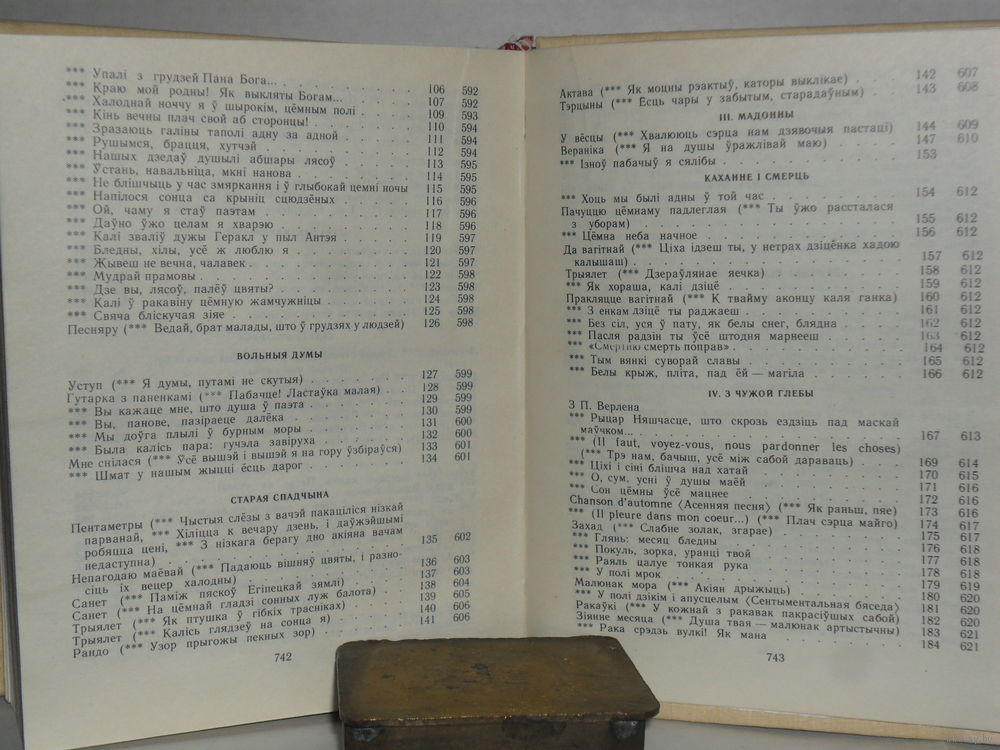 *** Упалі з грудзей Пана Бога...
*** Краю мой родны! Як выкляты Богам... 106 592
*** Халоднай ноччу я ў шырокім, цёмным полі 107 592
*** Кінь вечны плач свой аб старонцы! 109 593
*** Зразаюць галіны таполі адну за адной 110 594
*** Рушымся, брацця, хутчэй 111 594
*** Нашых дзедаў душылі абшары лясоў 112 594
*** Ўстань, навальніца, мкні нанова 113 595
*** Не блішчыць у час змяркання і ў глыбокай цемні ночы 114 595
*** Напілося сонца са крыніц сцюдзёных 115 595
*** Ой, чаму я стаў паэтам 116 596
*** Даўно ўжо целам я хварэю 117 596
*** Калі зваліў дужы Геракл у пыл Антэя 118 596
*** Бледны, хілы, усё ж люблю я 119 597
*** Жывеш не вечна, чалавек 120 597
*** Мудрай прамовы 121 597
*** Дзе вы, лясоў, палёў цвяты? 122 598
*** Калі ў ракавіну цёмную жамчужніцы 123 598
*** Свяча бліскучая зіяе 124 598
Песняру (*** Ведай, брат малады, што ў грудзях у людзей) 125 598
126 598
ВОЛЬНЫЯ ДУМЫ
Уступ (*** Я думы, путамі не скутыя) 127 599
Гутарка з паненкамі (*** Пабачце! Ластаўка малая) 128 599
*** Вы кажаце мне, што душа ў паэта 129 599
*** Вы, панове, пазіраеце далёка 130 599
*** Мы доўга плылі ў бурным моры 131 600
*** Была калісь пара: гучэла завіруха 132 600
Мне снілася (*** Ўсё вышэй і вышэй я на гору ўзбіраўся) 133 601
*** Шмат у нашым жыцці ёсць дарог 134 601
СТАРАЯ СПАДЧЫНА
Пентаметры (*** Чыстыя слёзы з вачэй пакаціліся нізкай
парванай, *** Хіліцца к вечару дзень, і даўжэйшымі
робяцца цені, *** З нізкага берагу дно акіяна вачам
недаступна) 135 602
Непагодаю маёвай (*** Падаюць вішняў цвяты, і разно-
сіць іх вецер халодны) 136 603
Санет (*** Паміж пяскоў Егіпецкай зямлі) 137 603
Санет (*** На цёмнай гладзі сонных луж балота) 138 604
Трыялет (*** Як птушка ў гібкіх трасніках) 139 605
Трыялет (*** Калісь глядзеў на сонца я) 140 606
Рандо (*** Узор прыгожы пекных зор) 141 606
742
Актава (*** Як моцны рэактыў, каторы выклікае) 142 607
Тэрцыны (*** Ёсць чары у забытым, старадаўным) 143 608
III. МАДОННЫ
У вёсцы (*** Хвалююць сэрца нам дзявочыя пастаці) 144 609
Вераніка (*** Я на душы ўражлівай маю) 147 610
*** Ізноў пабачыў я сялібы 153
КАХАННЕ І СМЕРЦЬ
*** Хоць мы былі адны ў той час 154 612
Пачуццю цёмнаму падлеглая (*** Ты ўжо рассталася
з уборам) 155 612
*** Цёмна неба начное 156 612
Да вагітнай (*** Ціха ідзеш ты, у нетрах дзіцёнка хадою
калышаш) 157 612
Трыялет (*** Дзераўлянае яечка) 158 612
*** Як хораша, калі дзіцё 159 612
Пракляцце вагітнай (*** К твайму аконцу каля ганка) 160 612
*** З енкам дзіцё ты раджаеш 161 612
*** Без сіл, уся ў пату, як белы снег, блядна 162 612
*** Пасля радзін ты ўсё штодня марнееш 163 612
*** «Смертию смерть поправ» 164 612
*** Тым вянкі суворай славы 165 612
*** Белы крыж, пліта, пад ёй — магіла 166 612
IV. З ЧУЖОЙ ГЛЕБЫ
З П. Верлена
*** Рыцар Няшчасце, што скрозь ездзіць пад маскай
маўчком... 167 613
*** (Il faut, voyez-vous, nous pardonner les choses)
(*** Трэ нам, бачыш, усё між сабой дараваць) 169 614
*** Ціхі і сіні блішча над хатай 170 615
*** О, сум, усні ў душы маёй 171 616
*** Сон цёмны ўсё мацнее 172 616
Chanson d'automne (Асенняя песня) (*** Як раньш, пяе) 173 616
*** (Il pleure dans mon coeur...) (*** Плач сэрца майго) 174 617
Захад (*** Слабне золак, згарае) 175 617
*** Глянь: месяц бледны 176 618
*** Покуль, зорка, уранці твой 177 618
*** Раяль цалуе тонкая рука 178 618
*** У полі мрок 179 619
Малюнак мора (*** Акіян дрыжыць) 180 620
*** У полі дзікім і апусцелым (Сентыментальная бяседа) 181 620
Ракаўкі (*** У кожнай з ракавак пакрасіўшых сабой) 182 620
Зіянне месяца (*** Душа твая — малюнак артыстычны) 183 621
*** Рака срэдзь вулкі! Як мана 184 621
743